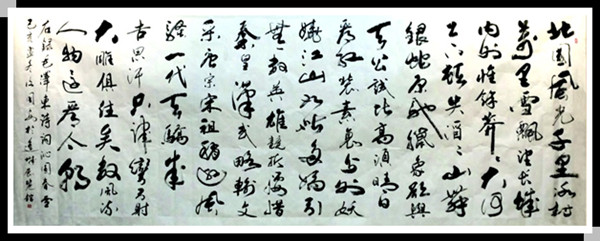 北国風光千里冰封
萬里雪飘望长城
内外惟馀莽莽大河
上下顿失滔滔山舞
银蛇原驰蜡象欲與
天公試比高須晴日
看红装素裹分外妖
娆江山如此多娇引
無数英雄競折腰惜
秦皇漢武略輸文
采唐宗宋祖稍逊風
騷一代天骄成
吉思汗只识彎弓射
大雕俱往矣数風流
人物还看今朝
右録毛澤東詩词沁园春雪
己亥